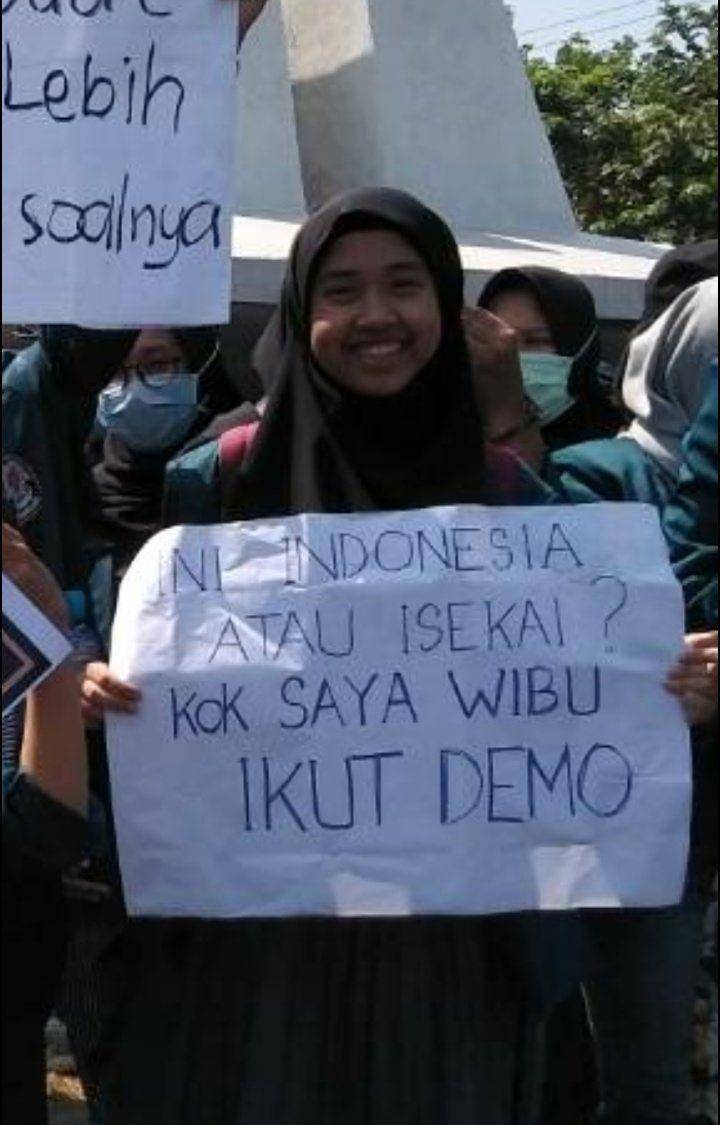 Lebih
soalnya
INI INDONESIA
ATAU ISEKAI?
KOK SAYA WIBU
IKUT DEMO